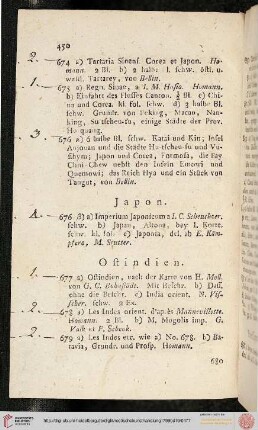 450
2. 674 a) Tartaria Sinens. Corea et Japon. Ho-
mann. 2 Bl. b) 2 halbe f. schw. östl. u.
westl. Tartarey, von Bellin.
1. 675 a) Regn. Sinae, a I. M. Hasio. Homann.
b) Einfahrt des Flusses Canton. ½ Bl. c) Chi-
na und Corea. kl. fol. schw. d) 3 halbe Bl.
schw. Grundr. von Peking, Macao, Nan-
king, Su-tscheu-fu, einige Städte der Prov.
Hu quang.
3. 676 a) 6 halbe Bl. schw. Katai und Kin; Insel
Anjouan und die Städte Hu-tscheu-fu und Vu-
Shym; Japon und Corea, Formosa, die Bay
Chin-Chew nebst den Inseln Emowi und
Quemowi; das Reich Hya und ein Stück von
Tangut, von Bellin.
Japon.
1. 676 ß) a) Imperium Japonicum a I. C. Scheuchzer.
schw. b) Japan, Altona, bey I. Korte.
schw. kl. fol. c) Japonia, del. ab E. Käm-
pfero, M. Seutter.
Ostindien.
1. 677 a) Ostindien, nach der Karte von H. Moll.
von G. C. Bohnstädt. Mit Beschr. b) Dass.
ohne die Beschr. c) India orient. N. Vis-
scher. schw. 2 Ex.
2. 678 a) Les Indes orient. d'après Mannevillette.
Homann. 2 Bl. b) M. Mogolis imp. G.
Valk et P. Schenk.
2. 679 a) Les Indes etc. wie a) No. 678. b) Ba-
tavia, Grundr. und Prosp. Homann.
680